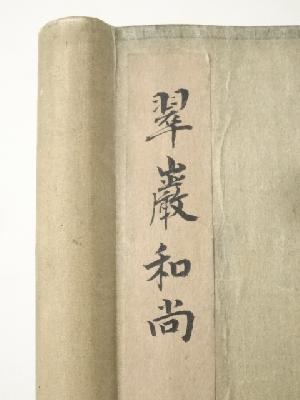 翠巖和尚